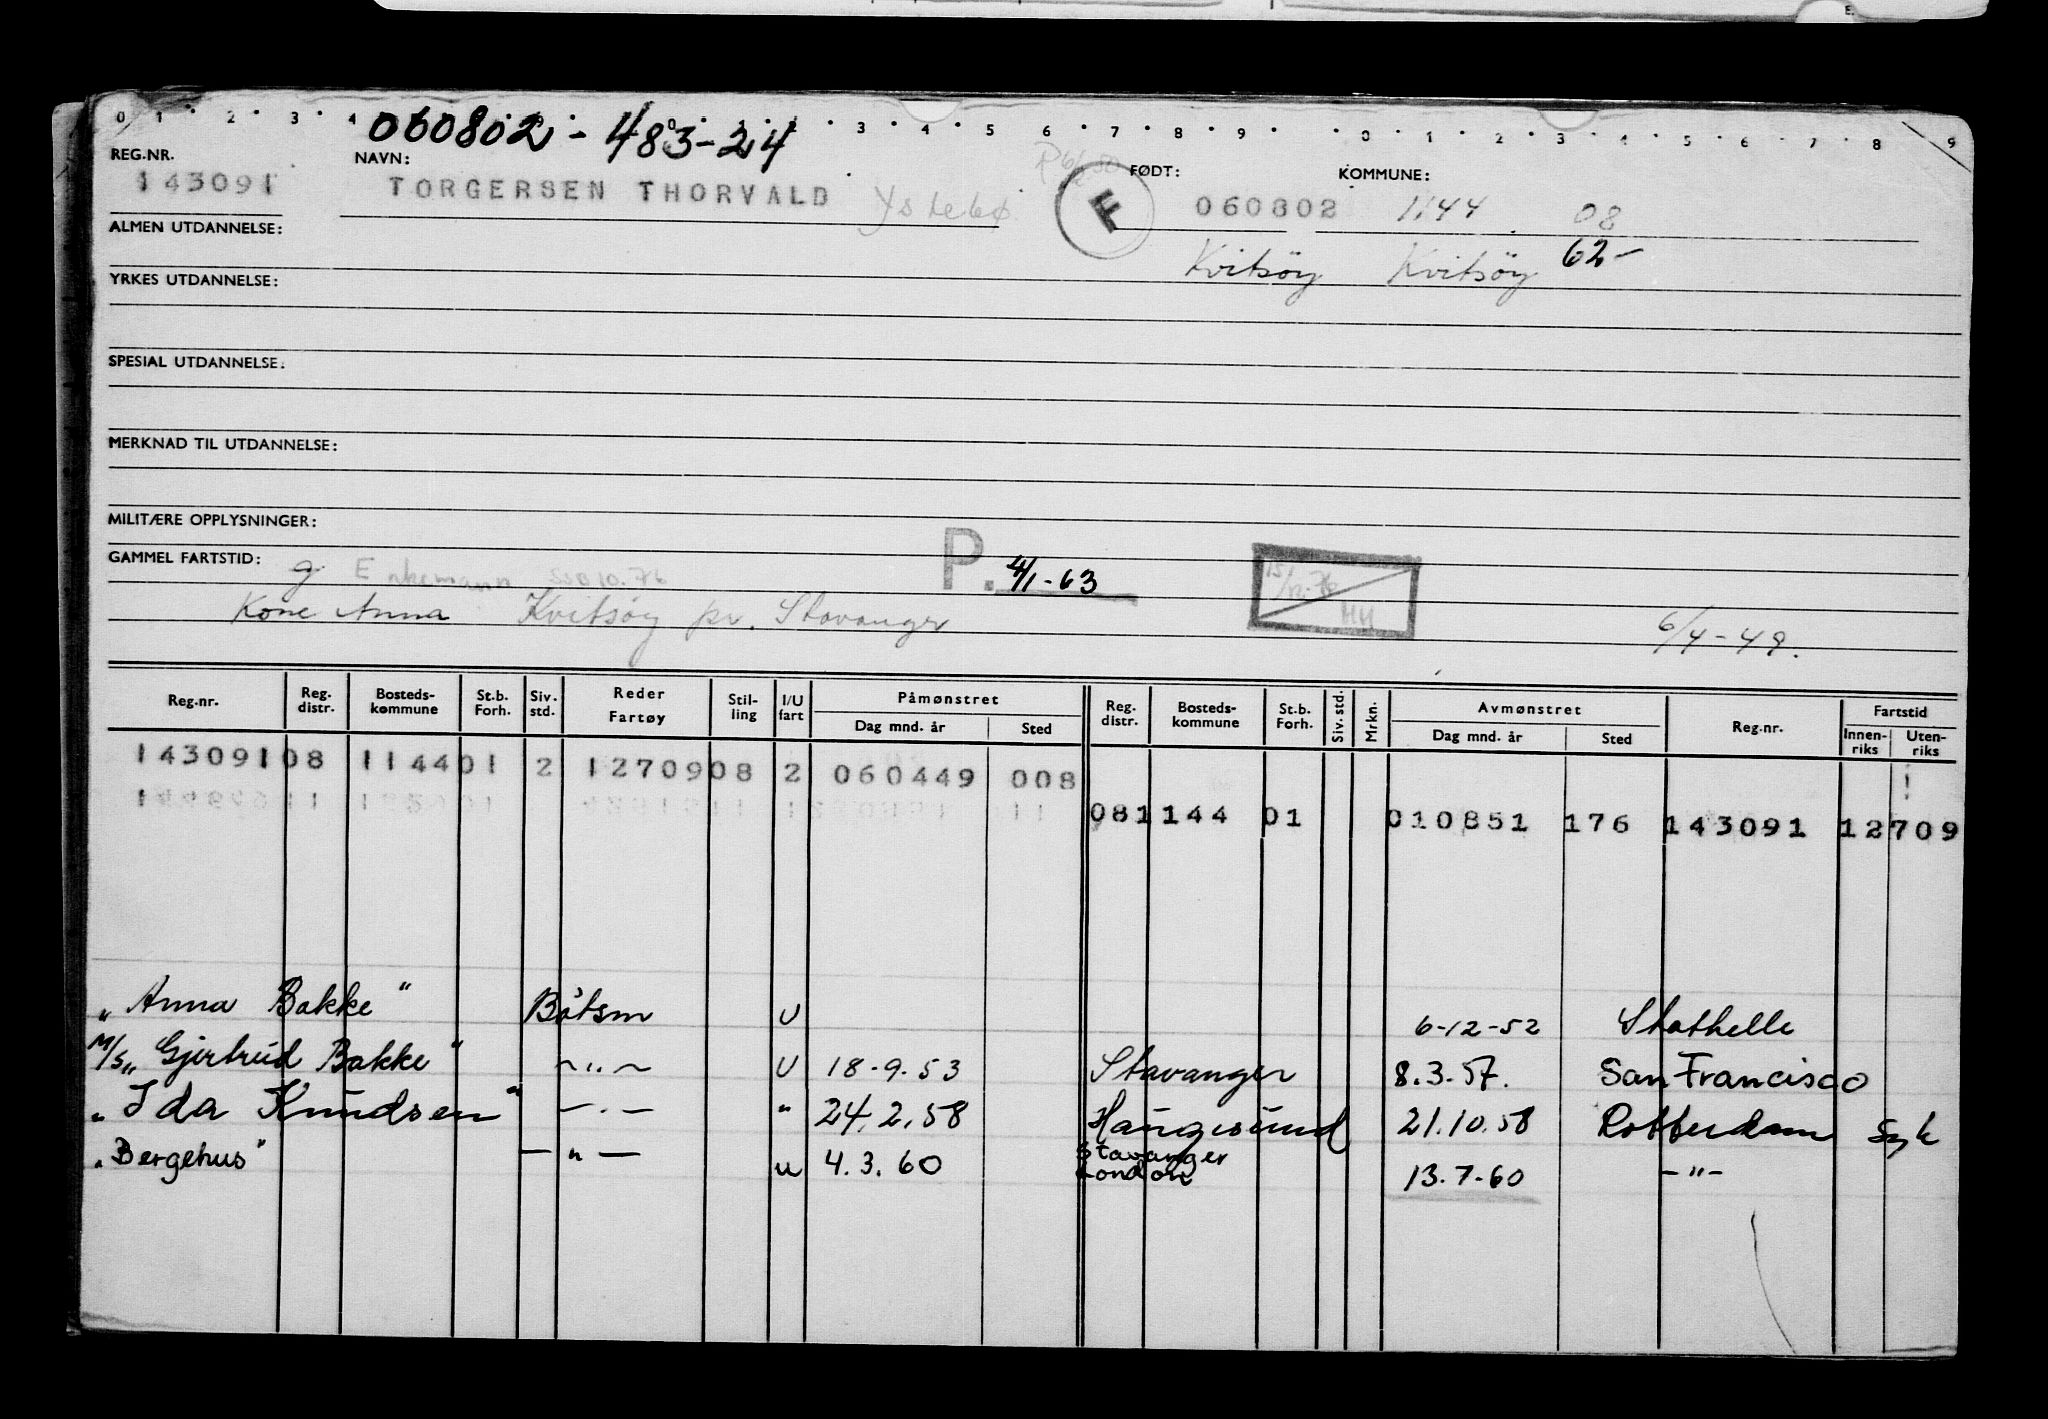 060802 - 483-24
0 1 2 3 4 3 4 5 6 7 8 9 0 1 2 3 4 5 6 7 8 9
REG.NR. NAVN: FØDT: KOMMUNE:
143091 TORGERSEN THORVALD Ystebø F 060802 1144 08
ALMEN UTDANNELSE:
Kvitsøy Kvitsøy 62-
YRKES UTDANNELSE:
SPESIAL UTDANNELSE:
MERKNAD TIL UTDANNELSE:
MILITÆRE OPPLYSNINGER:
GAMMEL FARTSTID: g Enkemann 10.76 P. 4/1-63
Kone Anna Kvitsøy pr. Stavanger HH 6/4-49.
Reg.nr. Reg. distr. Bosteds-kommune St.b. Forh. Siv. std. Reder Fartøy Stil-ling I/U fart Påmønstret Dag mnd. år Sted Reg. distr. Bosteds-kommune St.b. Forh. Siv. std. Mrkn. Avmønstret Dag mnd. år Sted Reg.nr. Fartstid Innen-riks Uten-riks
143091 08 1144 01 2 12709 08 2 060449 008
08 1144 01 010851 176 143091 12709
„Anna Bakke" Båtsm U 6-12-52 Stathelle
M/S „Gjertrud Bakke" -"- U 18-9.53 Stavanger 8.3.57. San Francisco
„Ida Knudsen" -"- " 24.2.58 Haugesund 21.10.58 Rotterdam Syk
„Bergehus" -"- u 4.3.60 Stavanger London 13.7-60 -"-